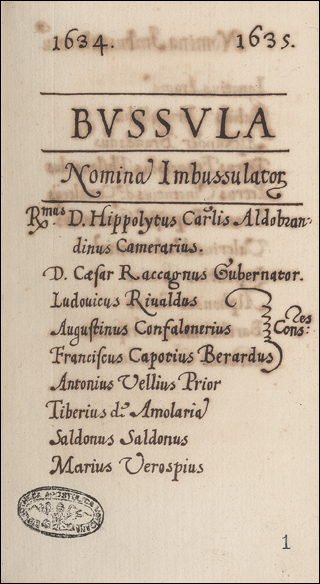 1634. 1635.
BVSSVLA
Nomina Imbussulator
Rmus D. Hippolytus Carlis Aldobran-
dinus Camerarius.
D. Cæsar Raccagnus Gubernator.
Ludouicus Riualdus
Augustinus Confalonerius
Consres
Franciscus Capotius Berardus
Antonius Vellius Prior
Tiberius d. Amolaria
Saldonus Saldonus
Marius Verospius
1